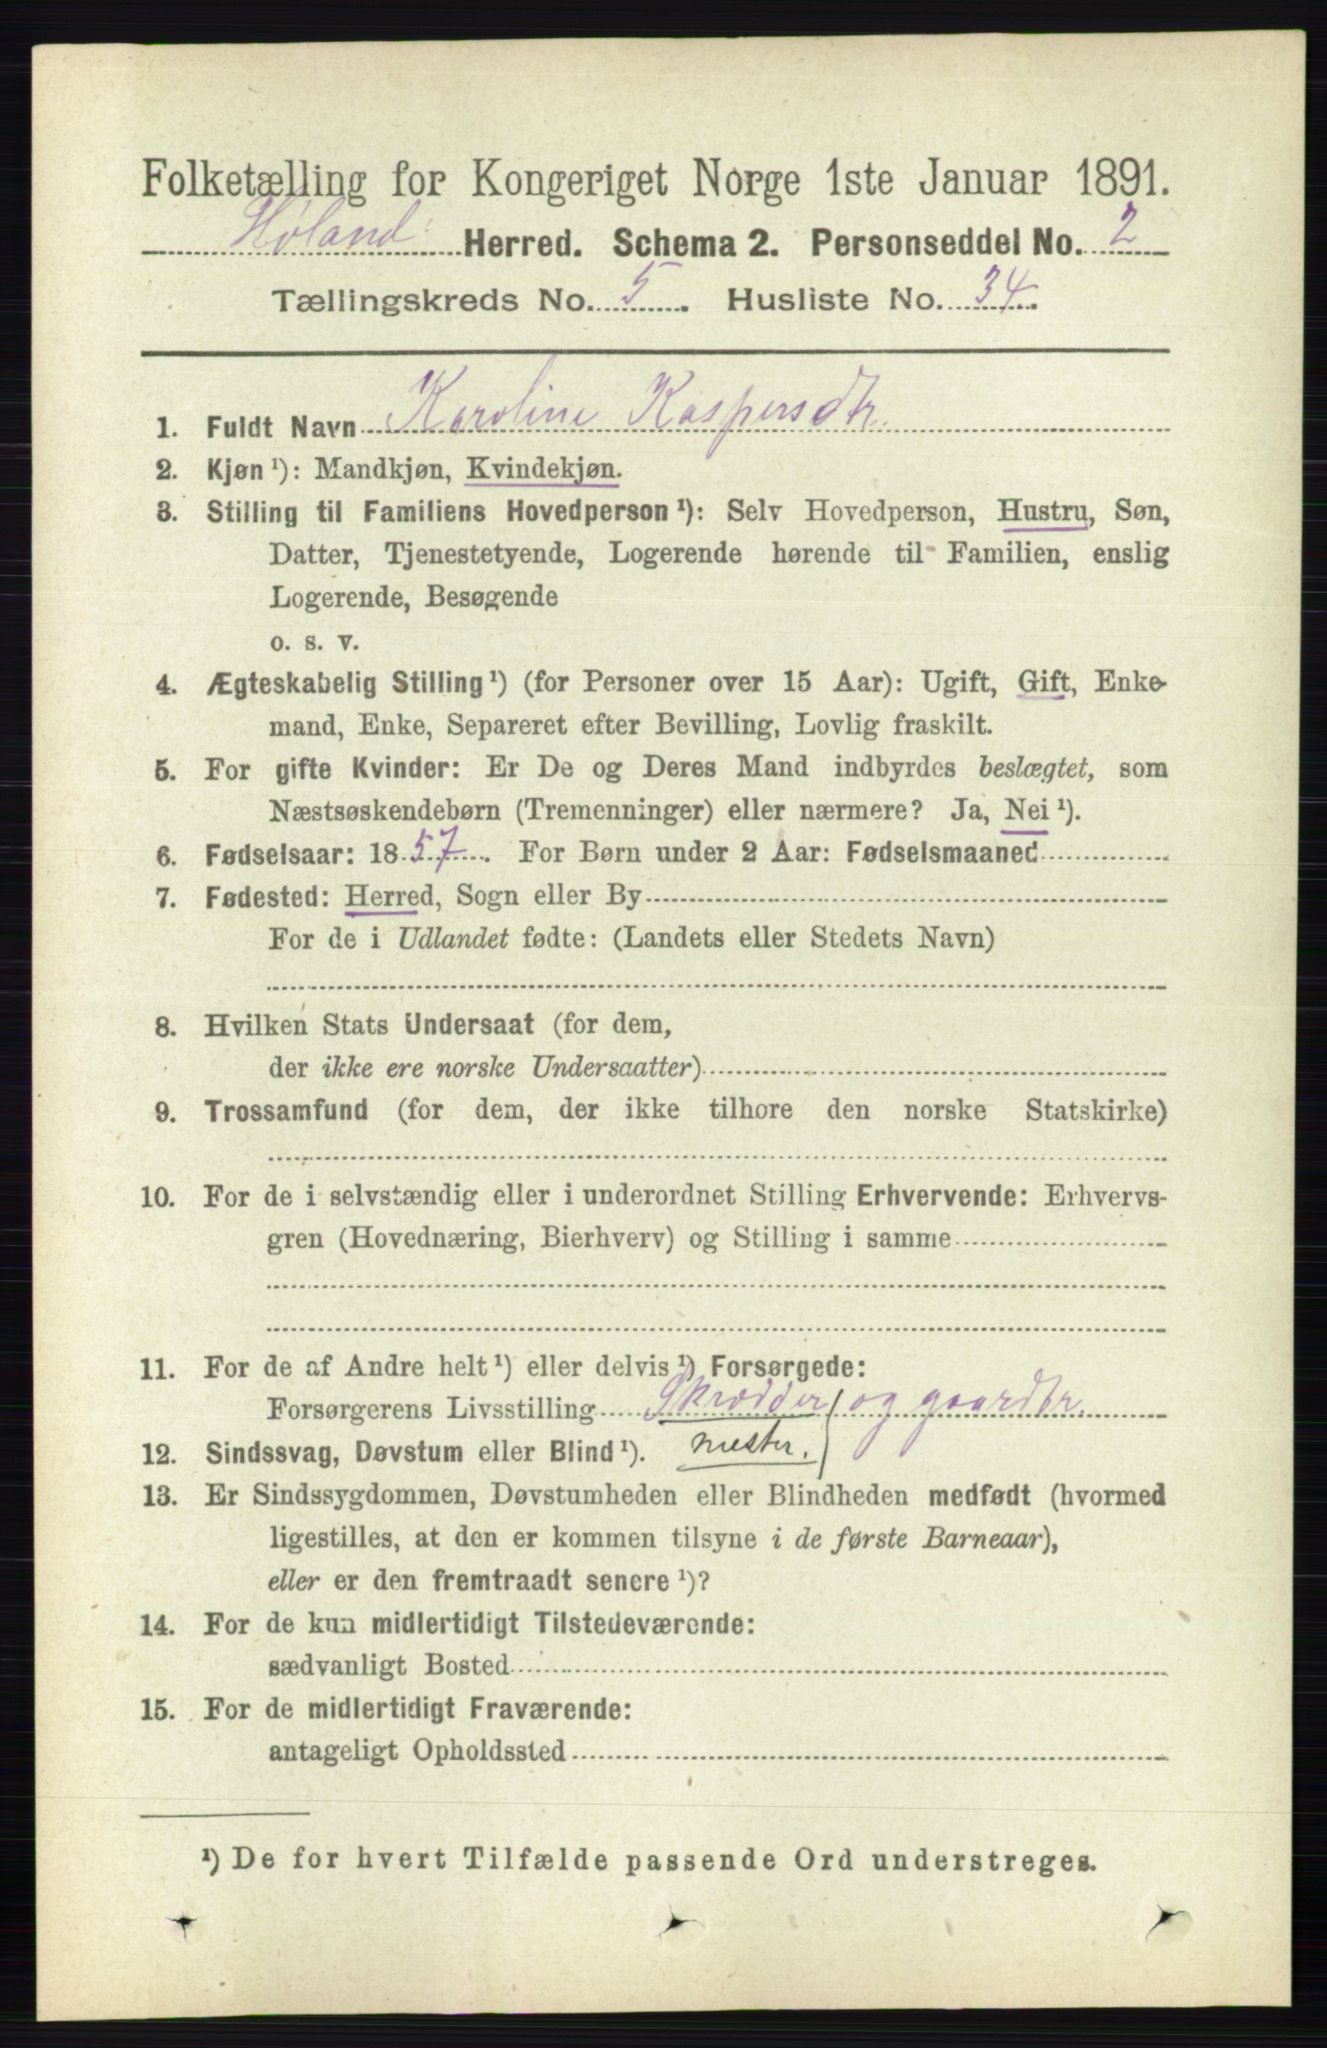 Folketælling for Kongeriget Norge 1ste Januar 1891.
Høland Herred. Schema 2. Personseddel No. 2
Tællingskreds No. 5. Husliste No. 34.
1. Fuldt Navn Karoline Kaspersdtr.
2. Kjøn¹): Mandkjøn, Kvindekjøn.
3. Stilling til Familiens Hovedperson¹): Selv Hovedperson, Hustru, Søn,
Datter, Tjenestetyende, Logerende hørende til Familien, enslig
Logerende, Besøgende
o. s. v.
4. Ægteskabelig Stilling¹) (for Personer over 15 Aar): Ugift, Gift, Enke-
mand, Enke, Separeret efter Bevilling, Lovlig fraskilt.
5. For gifte Kvinder: Er De og Deres Mand indbyrdes beslægtet, som
Næstsøskendebørn (Tremenninger) eller nærmere? Ja, Nei¹).
6. Fødselsaar: 1857. For Børn under 2 Aar: Fødselsmaaned
7. Fødested: Herred, Sogn eller By
For de i Udlandet fødte: (Landets eller Stedets Navn)
8. Hvilken Stats Undersaat (for dem,
der ikke ere norske Undersaatter)
9. Trossamfund (for dem, der ikke tilhøre den norske Statskirke)
10. For de i selvstændig eller i underordnet Stilling Erhvervende: Erhvervs-
gren (Hovednæring, Bierhverv) og Stilling i samme
11. For de af Andre helt¹) eller delvis¹) Forsørgede:
Forsørgerens Livsstilling Skrædder og gaardbr.
12. Sindssvag, Døvstum eller Blind¹). mester.
13. Er Sindssygdommen, Døvstumheden eller Blindheden medfødt (hvormed
ligestilles, at den er kommen tilsyne i de første Barneaar),
eller er den fremtraadt senere¹)?
14. For de kun midlertidigt Tilstedeværende:
sædvanligt Bosted
15. For de midlertidigt Fraværende:
antageligt Opholdssted
¹) De for hvert Tilfælde passende Ord understreges.